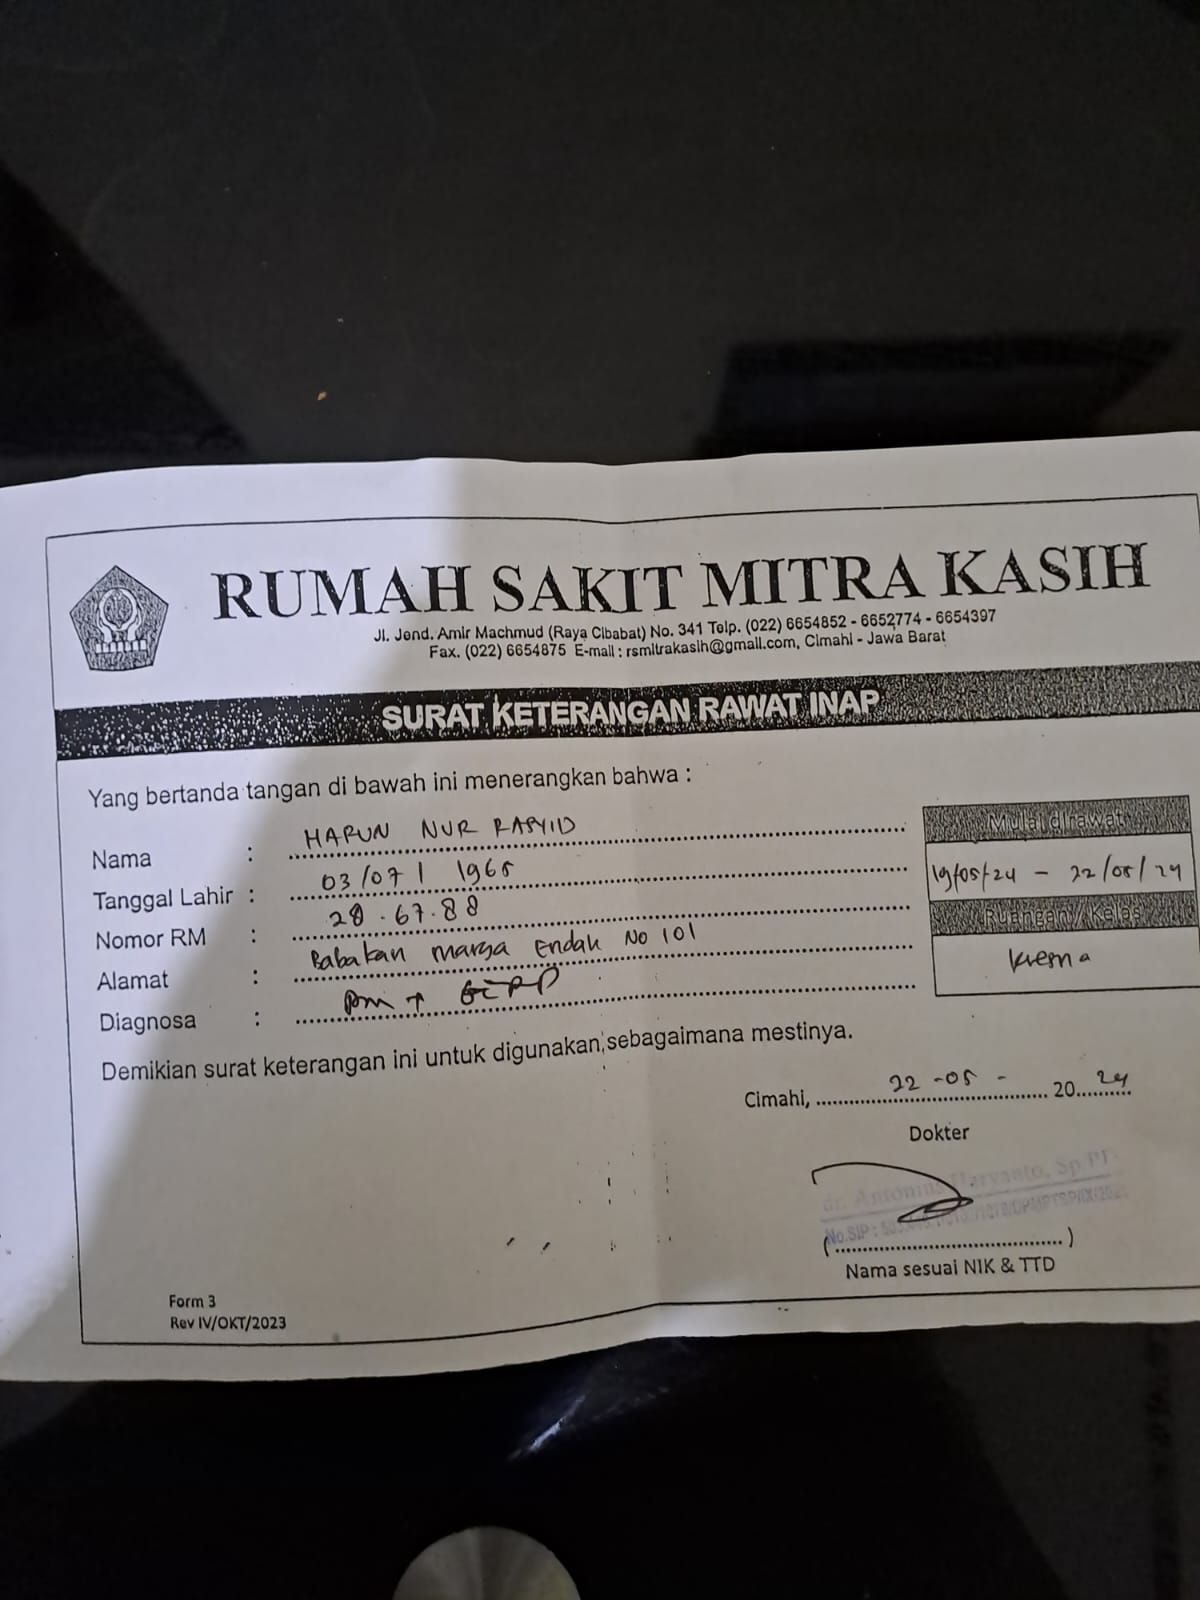 RUMAH SAKIT MITRA KASIH
Jl. Jend. Amir Machmud (Raya Cibabat) No. 341 Telp. (022) 6654852 - 6652774 - 6654397
Fax. (022) 6654875 E-mail : rsmitrakasih@gmail.com, Cimahi - Jawa Barat
SURAT KETERANGAN RAWAT INAP
Yang bertanda tangan di bawah ini menerangkan bahwa :
Nama : HARUN NUR RASYID
Tanggal Lahir : 03/07/1965
Nomor RM : 28.67.88
Alamat : Babakan marga Endah No 101
Diagnosa : DM + GERD
Mulai dirawat
19/05/24 - 22/05/24
Ruangan/Kelas
Kresna
Demikian surat keterangan ini untuk digunakan sebagaimana mestinya.
Cimahi, 22 -05 - 2024
Dokter
dr. Antonius Haryanto, Sp.PD
No.SIP :
(..............................)
Nama sesuai NIK & TTD
Form 3
Rev IV/OKT/2023